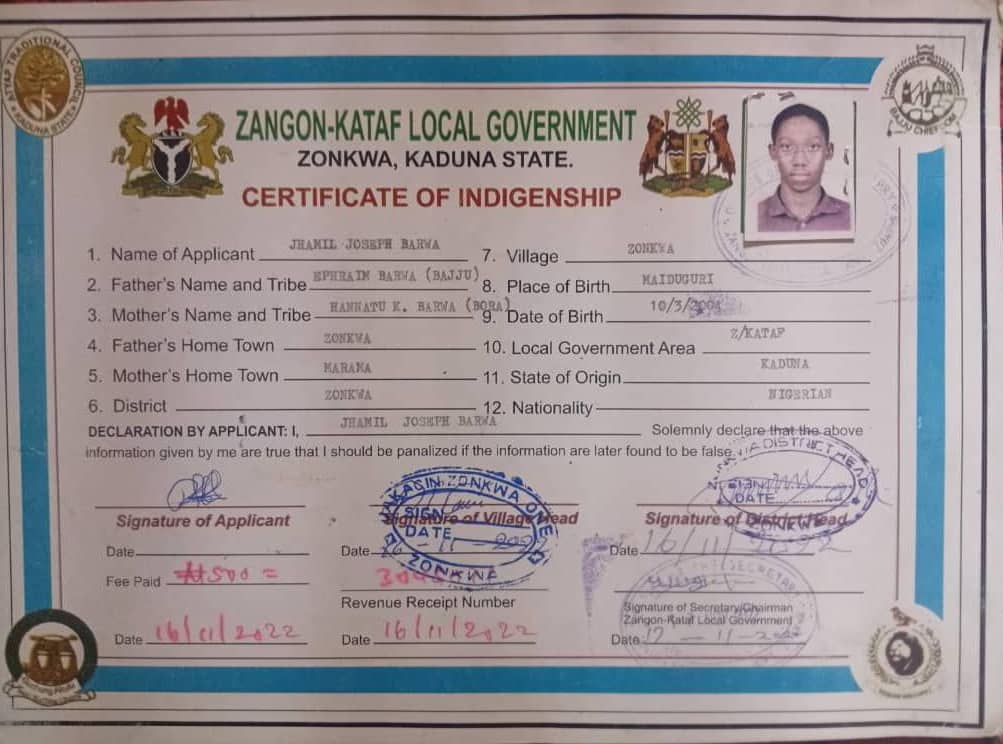 ATYAP TRADITIONAL COUNCIL
KADUNA STATE
BAJJU CHIEFDOM
ZANGON-KATAF LOCAL GOVERNMENT
ZONKWA, KADUNA STATE.
CERTIFICATE OF INDIGENSHIP
1. Name of Applicant JHAMIL JOSEPH BARWA
2. Father's Name and Tribe EPHRAIM BARWA (BAJJU)
3. Mother's Name and Tribe HANNATU K. BARWA (BORA)
4. Father's Home Town ZONKWA
5. Mother's Home Town MARAMA
6. District ZONKWA
7. Village ZONKWA
8. Place of Birth MAIDUGURI
9. Date of Birth 10/3/
10. Local Government Area Z/KATAF
11. State of Origin KADUNA
12. Nationality NIGERIAN
DECLARATION BY APPLICANT: I, JHAMIL JOSEPH BARWA Solemnly declare that the above
information given by me are true that I should be panalized if the information are later found to be false.
Signature of Applicant
Signature of Village Head
Signature of District Head
ZONKWA ONE
SIGN
DATE
ZONKWA
DISTRICT HEAD
SIGN
DATE
ZONKWA
Date
Date 16-11-2022
Date 16/11/2022
Fee Paid ₦500 =
Revenue Receipt Number
SECRETARY
Signature of Secretary/Chairman
Zangon-Kataf Local Government
Date 16/11/2022
Date 16/11/2022
Date 17-11-2022